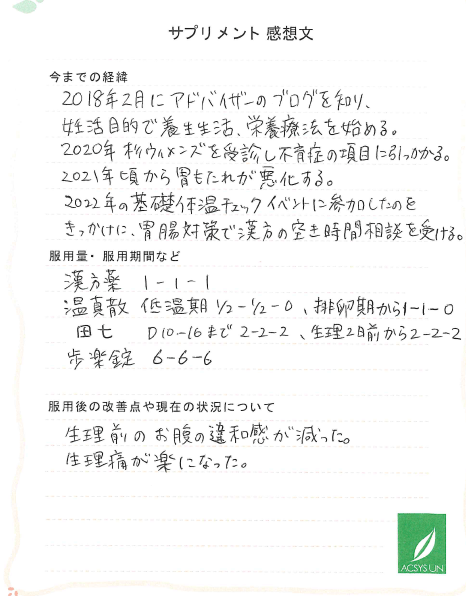 サプリメント 感想文
今までの経緯
2018年2月にアドバイザーのブログを知り、
妊活目的で養生生活、栄養療法を始める。
2020年 杉ウィメンズを受診し不育症の項目に引っかかる。
2021年頃から胃もたれが悪化する。
2022年の基礎体温チェックイベントに参加したのを
きっかけに、胃腸対策で漢方の空き時間相談を受ける。
服用量・服用期間など
漢方薬 1-1-1
温真散 低温期 1/2-1/2-0、排卵期から1-1-0
田七 D10-16まで 2-2-2、生理2日前から2-2-2
歩楽錠 6-6-6
服用後の改善点や現在の状況について
生理前のお腹の違和感が減った。
生理痛が楽になった。
ACSYS UN